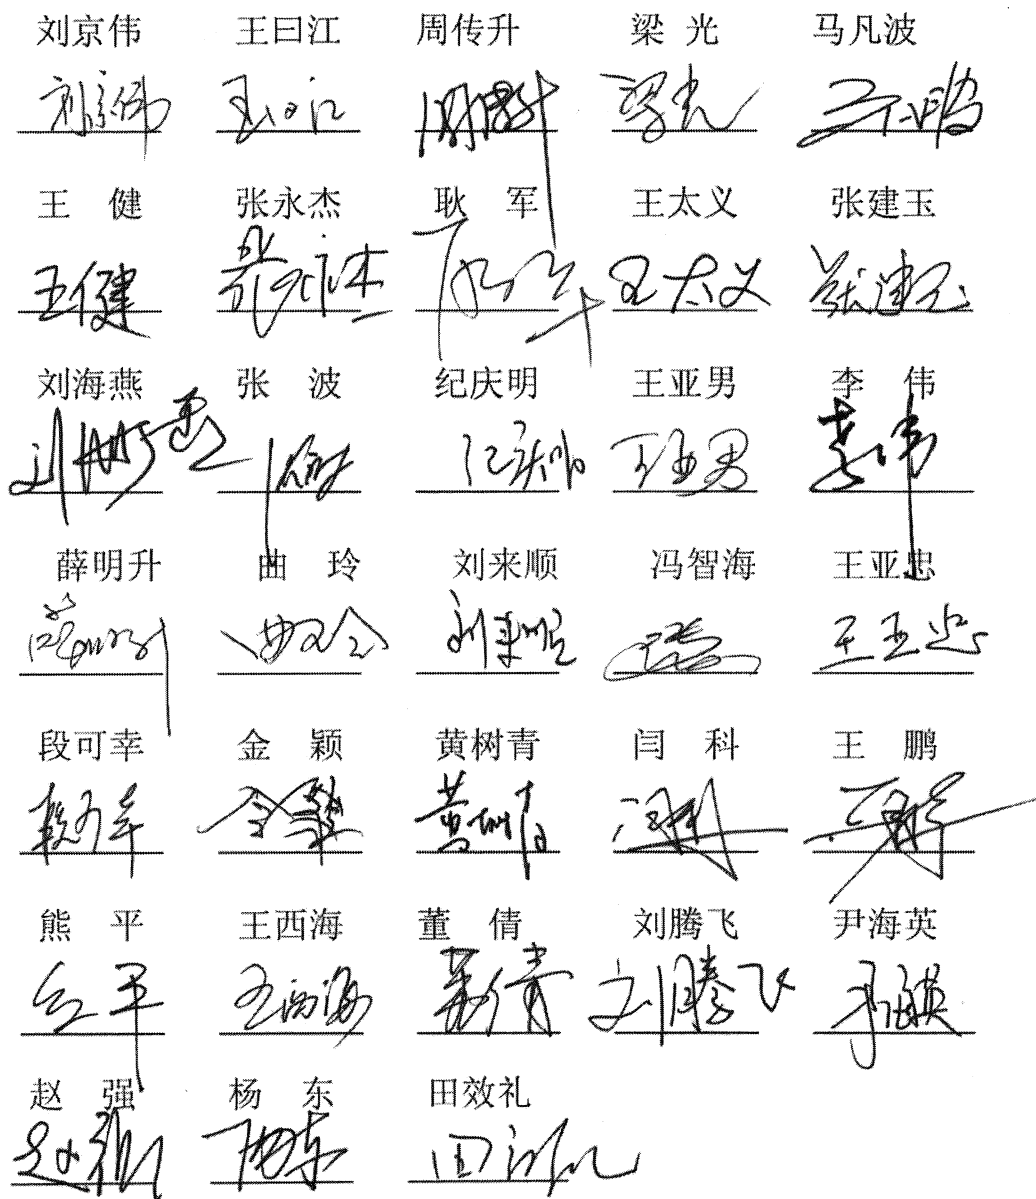 刘京伟 王曰江 周传升 梁 光 马凡波
刘京伟 王曰江 周传升 梁光
王 健 张永杰 耿 军 王太义 张建玉
王健 张永杰 王太义 张建玉
刘海燕 张 波 纪庆明 王亚男 李 伟
刘海燕 张波 纪庆明 王亚男 李伟
薛明升 曲 玲 刘来顺 冯智海 王亚忠
薛明升 曲玲 刘来顺 王亚忠
段可幸 金 颖 黄树青 闫 科 王 鹏
段可幸 金颖 黄树青 闫科 王鹏
熊 平 王西海 董 倩 刘腾飞 尹海英
王西海 董倩 刘腾飞 尹海英
赵 强 杨 东 田效礼
赵强 杨东 田效礼